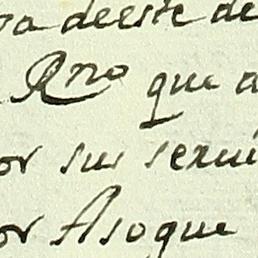 deeste de
Rno que a
or sus serui
or Asogue